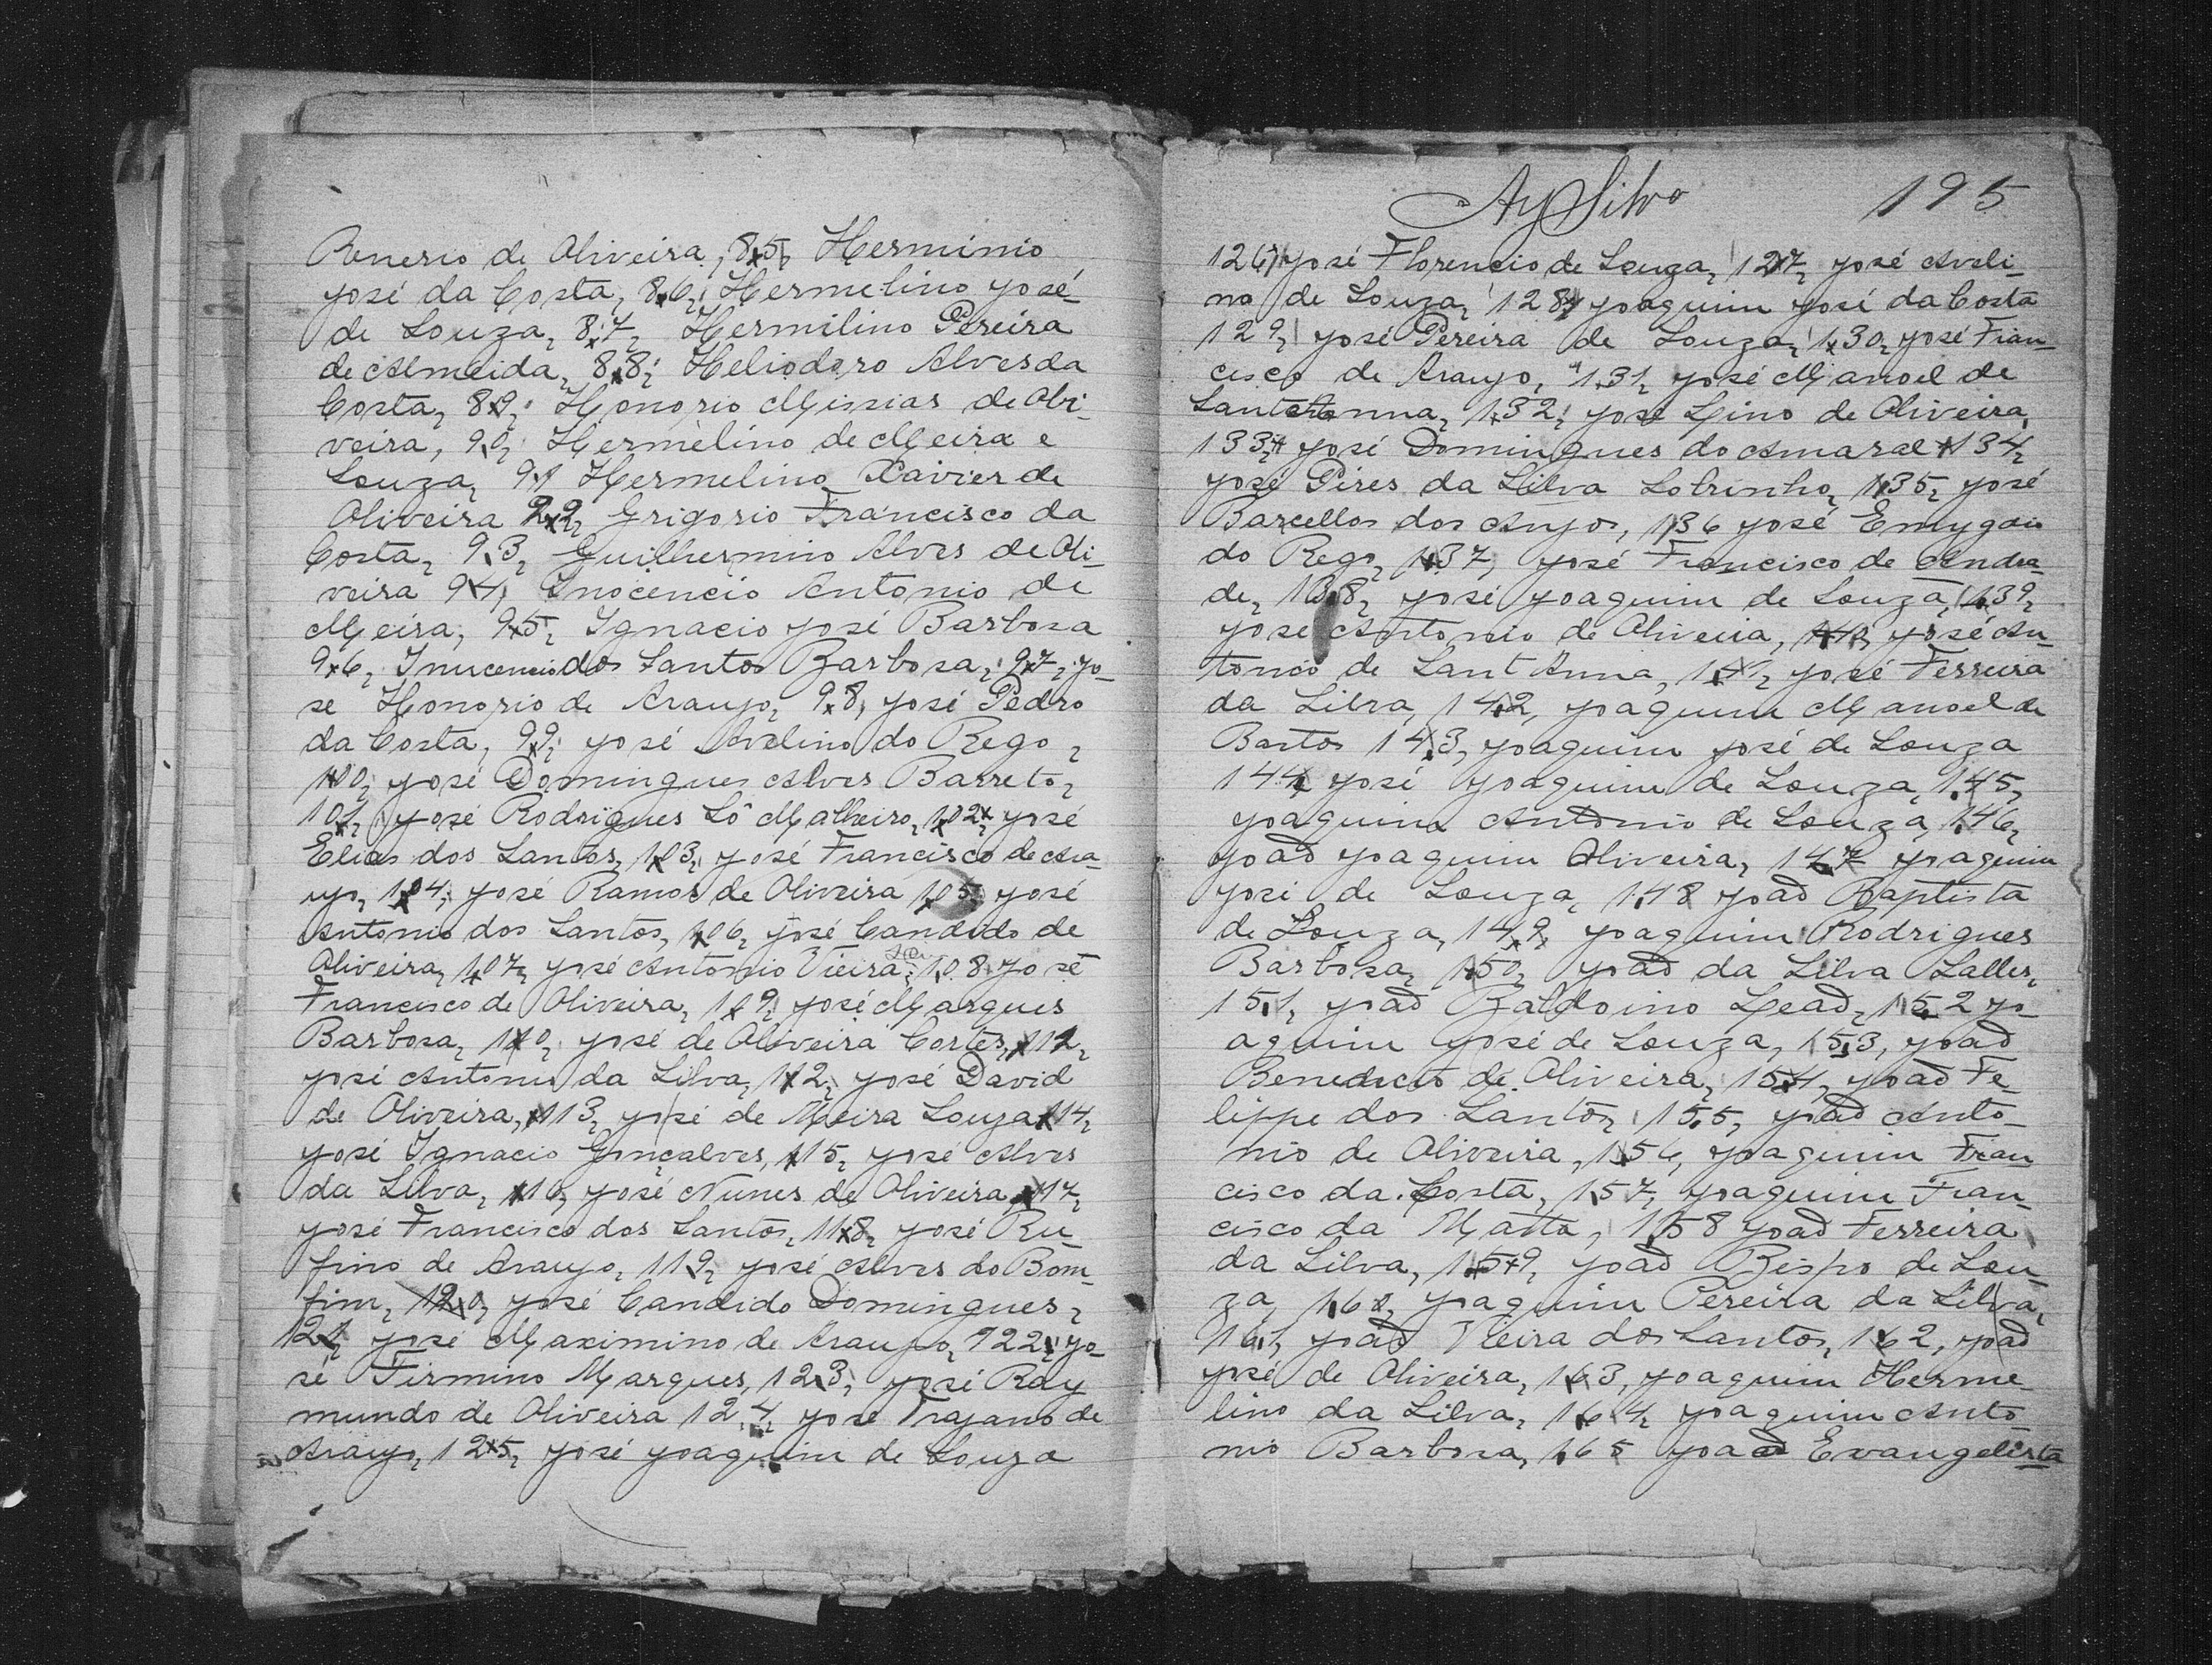 Renerio de Oliveira, 85, Herminio
José da Costa, 86, Hermelino José
de Souza, 87, Hermilino Pereira
de Almeida, 88, Heliodoro Alves da
Costa, 89, Honorio Missias de Oli-
veira, 90, Hermelino de Meira e
Souza, 91 Hermelino Xavier de
Oliveira 92, Grigorio Francisco da
Costa, 93, Guilhermino Alves de Oli-
veira 94, Inocencio Antonio de
Meira, 95, Ignacio José Barbosa
96, Inucencio dos Santos Barbosa, 97, Jo-
se Honorio de Araujo, 98, José Pedro
da Costa, 99, José Avelino do Rego,
100, José Domingues Alves Barreto,
101, José Rodrigues Sô Malheiro, 102, José
Elias dos Santos, 103, José Francisco de Ara-
ujo, 104, José Ramos de Oliveira 105, José
Antonio dos Santos, 106, José Candido de
Oliveira, 107, José Antonio Vieira, 108, José
Francisco de Oliveira, 109, José Marques
Barbosa, 110, José de Oliveira Cortes, 111,
José Antonio da Silva, 112, José David
de Oliveira, 113, José de Meira Souza 114,
José Ignacio Gonçalves, 115, José Alves
da Silva, 116, José Nunes de Oliveira, 117,
José Francisco dos Santos, 118, José Ru-
fino de Araujo, 119, José Alves do Bom-
fim, 120, José Candido Domingues,
121, José Maximino de Araujo, 122, Jo-
sé Firmino Marques, 123, José Ray
mundo de Oliveira 124, José Trajano de
Araujo, 125, José Joaquim de Souza
AySilva 195
126, José Florencio de Souza, 127, José Aveli-
no de Souza, 128, Joaquim José da Costa
129, José Pereira de Souza, 130, José Fran-
cisco de Araujo, 131, José Manoel de
Santanna, 132, José Lino de Oliveira,
133, José Domingues do Amaral 134,
José Pires da Silva Sobrinho, 135, José
Barcellos dos Anjos, 136 José Emygdio
do Rego, 137, José Francisco de Andra-
de, 138, José Joaquim de Souza, 139,
José Antonio de Oliveira, 140, José An-
tonio de Sant Anna, 141, José Ferreira
da Silva, 142, Joaquim Manoel de
Bastos 143, Joaquim José de Souza
144, José Joaquim de Souza, 145,
Joaquim Antonio de Souza, 146,
Joaõ Joaquim Oliveira, 147 Joaquim
José de Souza, 148 Joaõ Baptista
de Souza, 149, Joaquim Rodrigues
Barbosa, 150, Joaõ da Silva Salles,
151, Joaõ Baldoino Leaõ, 152 Jo-
aquim José de Souza, 153, Joaõ
Benedicto de Oliveira, 154, Joaõ Fe-
lippe dos Santos, 155, Joaõ Anto-
nio de Oliveira, 156, Joaquim Fran
cisco da Costa, 157, Joaquim Fran-
cisco da Matta, 158 Joaõ Ferreira
da Silva, 159, Joaõ Bispo de Sou-
za, 160, Joaquim Pereira da Silva,
161, Joaõ Vieira dos Santos, 162, Joaõ
José de Oliveira, 163, Joaquim Herme-
lino da Silva, 164, Joaquim Anto
nio Barbosa, 165 Joaõ Evangelista